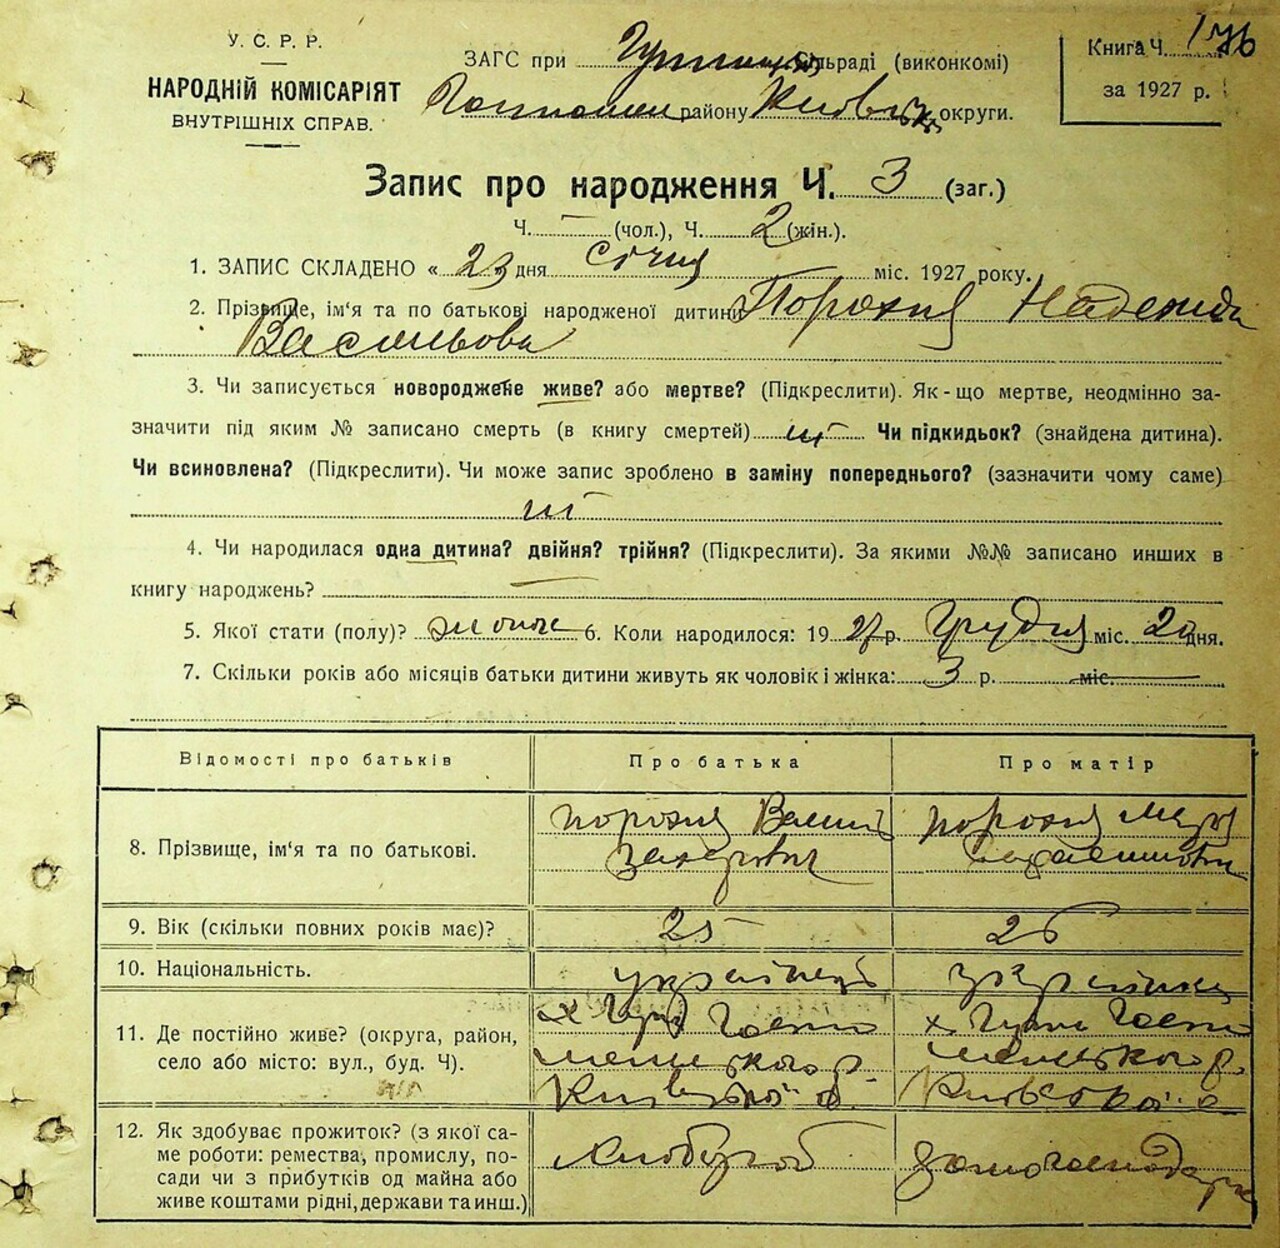 У. С. Р. Р.
НАРОДНІЙ КОМІСАРІЯТ
ВНУТРІШНІХ СПРАВ.
ЗАГС при сільраді (виконкомі)
району Київської округи.
Книга Ч. 176
за 1927 р.
Запис про народження Ч. 3 (заг.)
Ч. — (чол.), Ч. 2 (жін.).
1. ЗАПИС СКЛАДЕНО « 23 дня січня міс. 1927 року.
2. Прізвище, ім‘я та по батькові народженої дитини Порохня Надежда
Васильовна
3. Чи записується новороджене живе? або мертве? (Підкреслити). Як-що мертве, неодмінно за-
значити під яким № записано смерть (в книгу смертей) ні Чи підкидьок? (знайдена дитина).
Чи всиновлена? (Підкреслити). Чи може запис зроблено в заміну попереднього? (зазначити чому саме)
ні
4. Чи народилася одна дитина? двійня? трійня? (Підкреслити). За якими №№ записано инших в
книгу народжень? —
5. Якої стати (полу)? 6. Коли народилося: 19 27 р. Грудня міс. 20 дня.
7. Скільки років або місяців батьки дитини живуть як чоловік і жінка: 3 р. міс.
Відомості про батьків Про батька Про матір
8. Прізвище, ім‘я та по батькові. порохня Василь порохня
Захарович
9. Вік (скільки повних років має)? 25 26
10. Національність. українець українка
11. Де постійно живе? (округа, район,
село або місто: вул., буд. Ч). х Гости х Гости
мельського р. мельського р.
Київської о. Київської о
12. Як здобуває прожиток? (з якої са-
ме роботи: ремества, промислу, по-
сади чи з прибутків од майна або
живе коштами рідні, держави та инш.) хлібороб домогосподарка